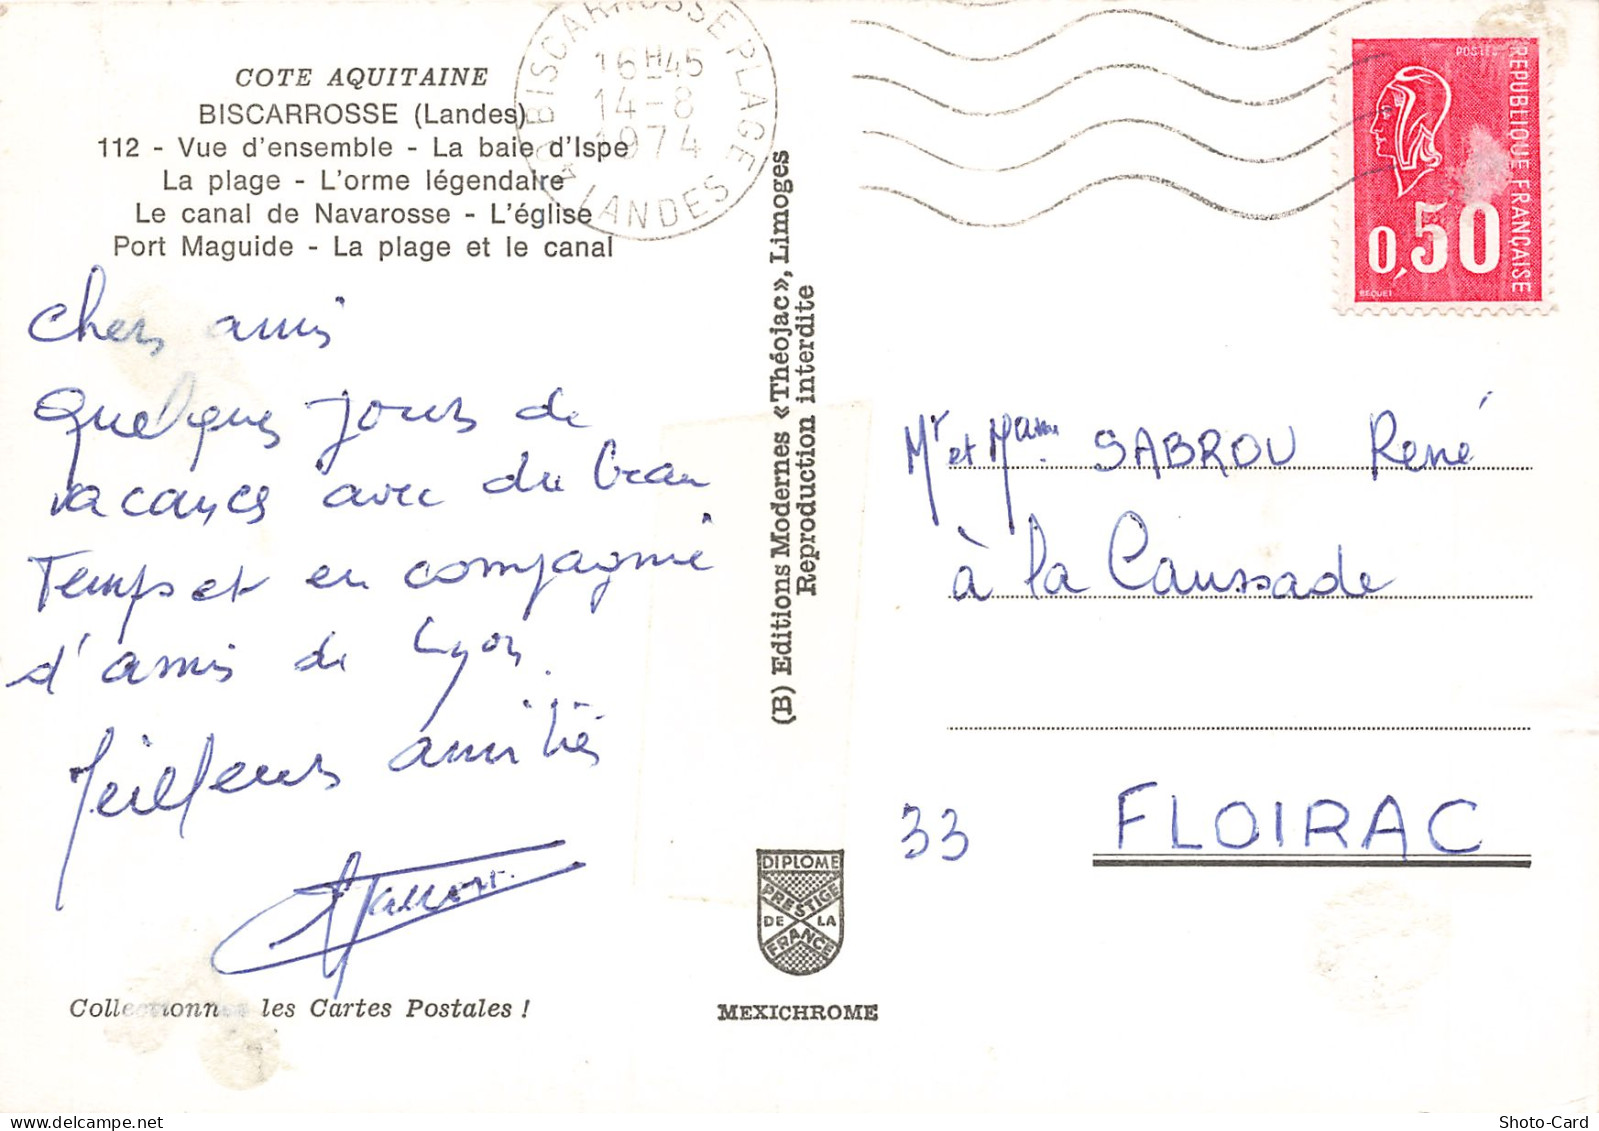 COTE AQUITAINE
BISCARROSSE (Landes)
112 - Vue d'ensemble - La baie d'Ispe
La plage - L'orme légendaire
Le canal de Navarosse - L'église
Port Maguide - La plage et le canal
BISCARROSSE PLAGE
16H45
14-8
1974
40 LANDES
POSTES
REPUBLIQUE FRANÇAISE
0,50
BEQUET
Chers amis
Quelques jours de
vacances avec du beau
Temps et en compagnie
d'amis de Lyon.
Meilleurs amitiés
Collectionnez les Cartes Postales !
(B) Editions Modernes «Théojac», Limoges
Reproduction interdite
DIPLOME
PRESTIGE
DE LA
FRANCE
MEXICHROME
Mr et Mame SABROU René
à la Caussade
33 FLOIRAC
Shoto-Card